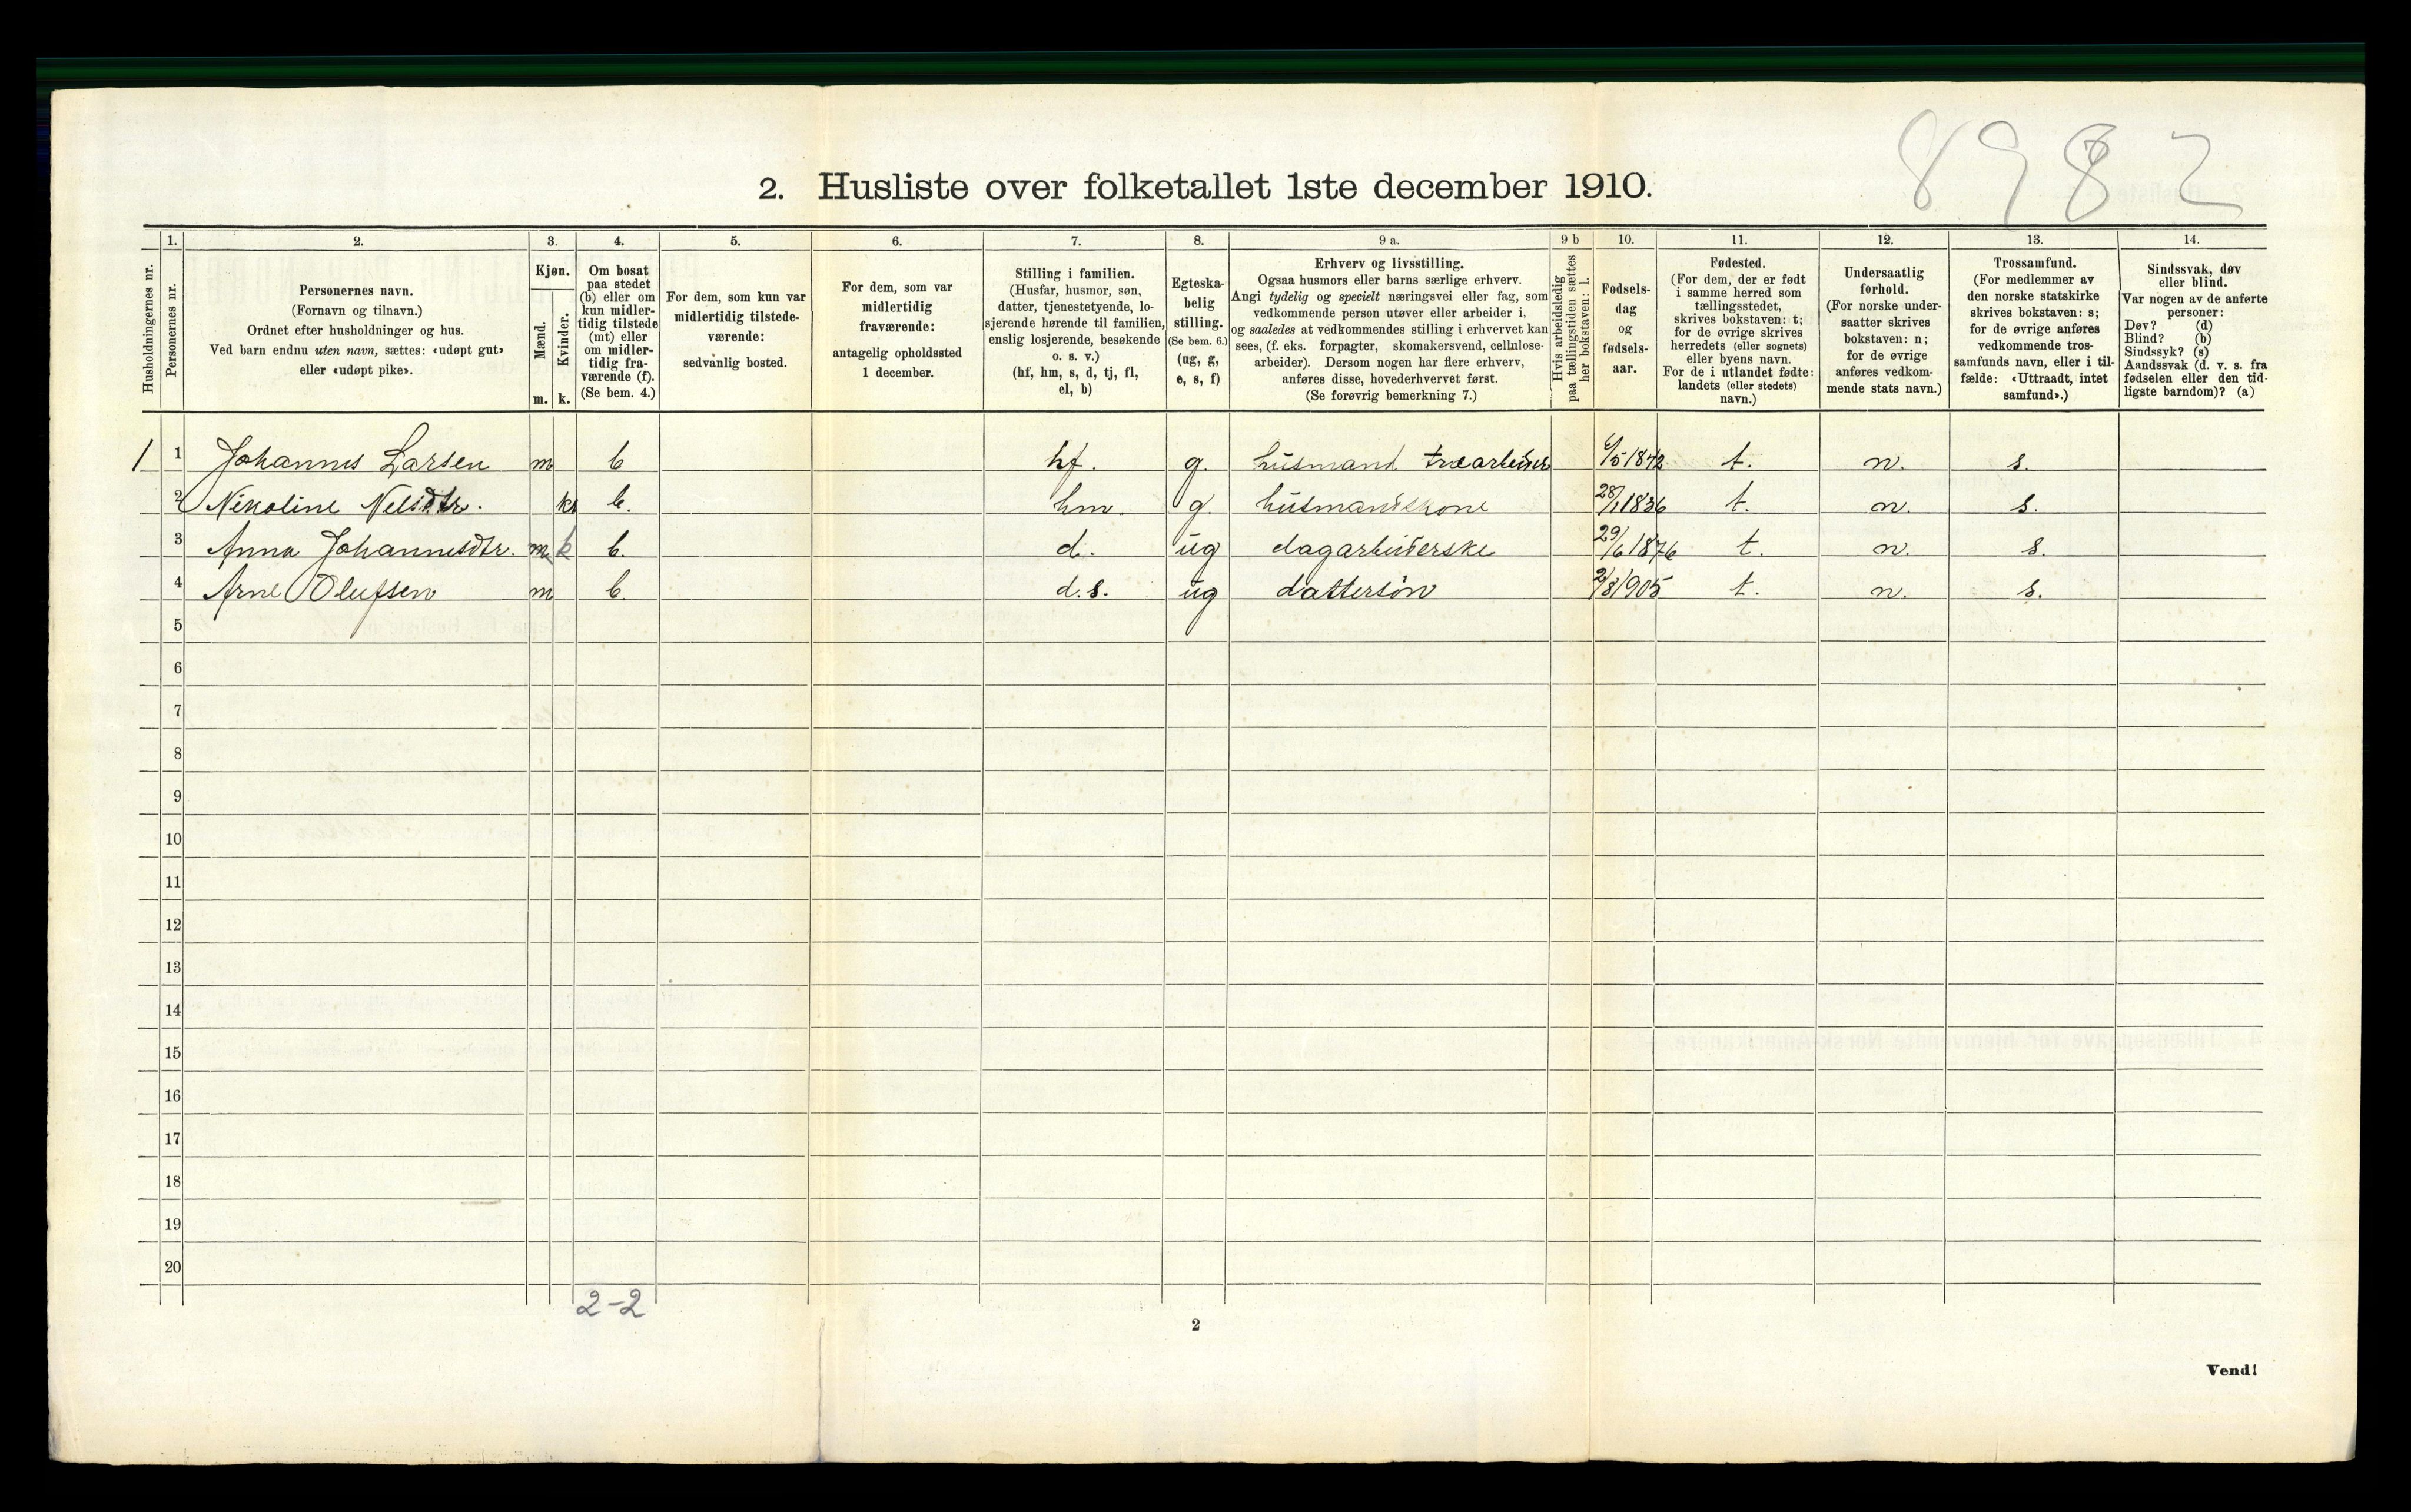 8982
2. Husliste over folketallet 1ste december 1910.
Husholdningernes nr.
1.
Personernes nr.
2.
Personernes navn.
(Fornavn og tilnavn.)
Ordnet efter husholdninger og hus.
Ved barn endnu uten navn, sættes: «udøpt gut»
eller «udøpt pike».
3.
Kjøn.
Mænd.
Kvinder.
m. k.
4.
Om bosat
paa stedet
(b) eller om
kun midler-
tidig tilstede
(mt) eller
om midler-
tidig fra-
værende (f).
(Se bem. 4.)
5.
For dem, som kun var
midlertidig tilstede-
værende:
sedvanlig bosted.
6.
For dem, som var
midlertidig
fraværende:
antagelig opholdssted
1 december.
7.
Stilling i familien.
(Husfar, husmor, søn,
datter, tjenestetyende, lo-
sjerende hørende til familien,
enslig losjerende, besøkende
o. s. v.)
(hf, hm, s, d, tj, fl,
el, b)
8.
Egteska-
belig
stilling.
(Se bem. 6.)
(ug, g,
e, s, f)
9 a.
Erhverv og livsstilling.
Ogsaa husmors eller barns særlige erhverv.
Angi tydelig og specielt næringsvei eller fag, som
vedkommende person utøver eller arbeider i,
og saaledes at vedkommendes stilling i erhvervet kan
sees, (f. eks. forpagter, skomakersvend, cellulose-
arbeider). Dersom nogen har flere erhverv,
anføres disse, hovederhvervet først.
(Se forøvrig bemerkning 7.)
9 b
Hvis arbeidsledig
paa tællingstiden sættes
her bokstaven: l.
10.
Fødsels-
dag
og
fødsels-
aar.
11.
Fødested.
(For dem, der er født
i samme herred som
tællingsstedet,
skrives bokstaven: t;
for de øvrige skrives
herredets (eller sognets)
eller byens navn.
For de i utlandet fødte:
landets (eller stedets)
navn.)
12.
Undersaatlig
forhold.
(For norske under-
saatter skrives
bokstaven: n;
for de øvrige
anføres vedkom-
mende stats navn.)
13.
Trossamfund.
(For medlemmer av
den norske statskirke
skrives bokstaven: s;
for de øvrige anføres
vedkommende tros-
samfunds navn, eller i til-
fælde: «Uttraadt, intet
samfund».)
14.
Sindssvak, døv
eller blind.
Var nogen av de anførte
personer:
Døv? (d)
Blind? (b)
Sindssyk? (s)
Aandssvak (d. v. s. fra
fødselen eller den tid-
ligste barndom)? (a)
1 1 Johannes Larsen m b hf. g. husmand træarbeider /5 1842 t. n. s.
2 Nikoline Nelsdtr. k b. hm. g. husmandskone 28/1 1836 t. n. s.
3 Anna Johannesdtr. m k b. d. ug dagarbeiderske 29/6 1876 t. n. s.
4 Arne Olufsen m b. d.s. ug dattersøn 2/8 1905 t. n. s.
5
6
7
8
9
10
11
12
13
14
15
16
17
18
19
20
2-2
2
Vend!